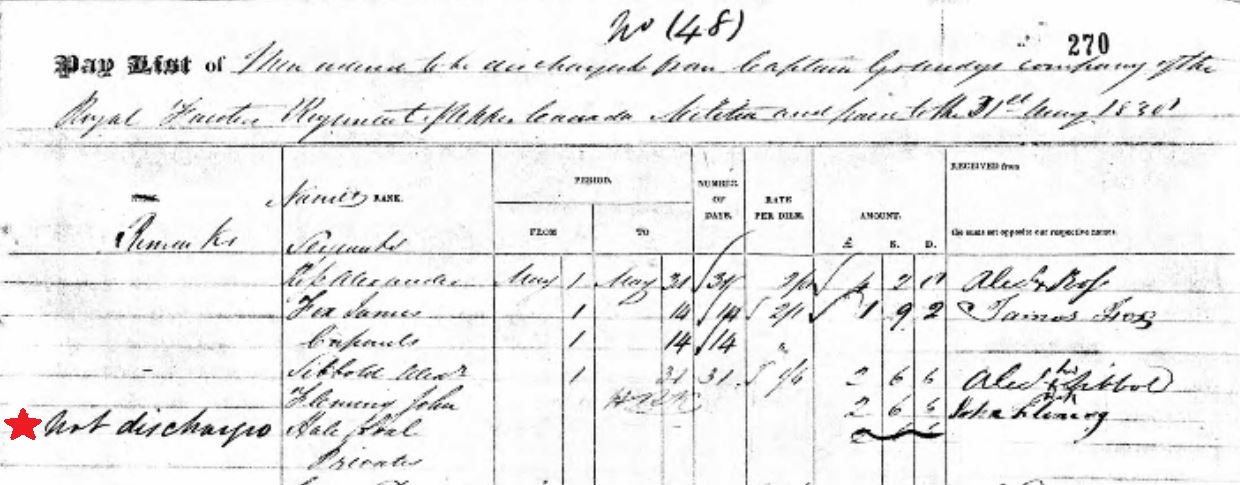 No (48)
270
Pay List of Men ordered to be discharged from Captain company of the
Royal Regiment Upper Canada Militia and paid to the 31st May
PERIOD.
NUMBER OF DAYS.
RATE PER DIEM.
AMOUNT.
RECEIVED from
Names RANK.
Remarks
FROM TO
£ S. D.
the sums set opposite our respective names.
Sergeants
Alexander May 1 May 31 31 4 2 Alexr Ross
Fox James 1 14 14 2/1 1 9 2 James Fox
Corporals 14 14
Sibbold Alexr 1 31 31 1/6 2 6 6 Alexr his Sibbold
Fleming John 2 6 6 John Fleming
Not discharged Hale
Privates